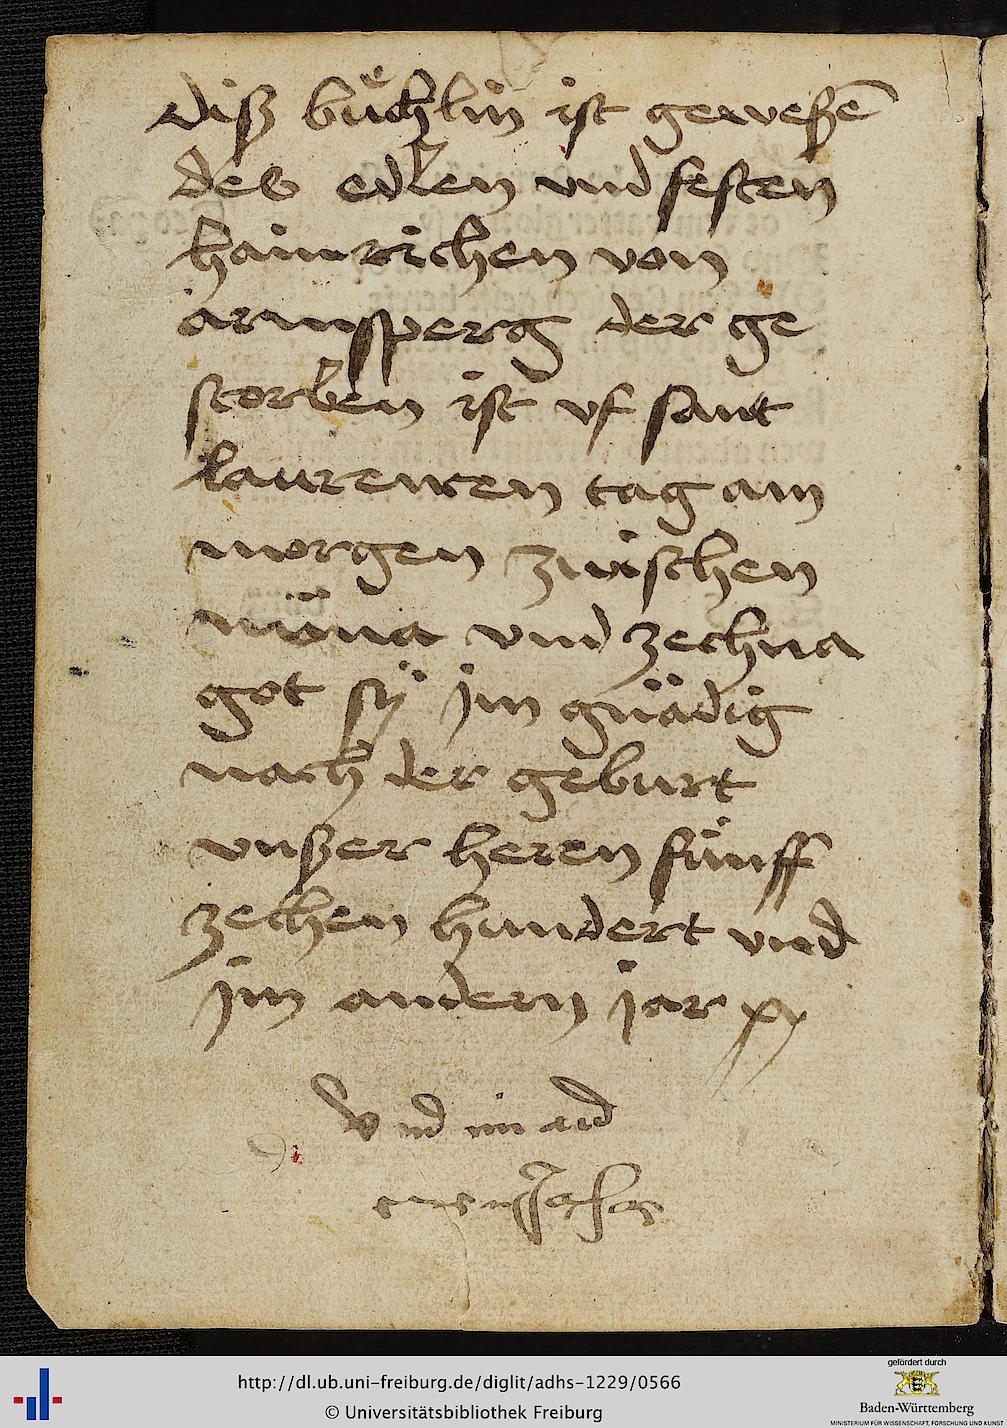 diß bůchlin ist geweßē
des edlen vnd festen
hainrichen von
armsperg der ge
storben ist vf sant
laurenten tag am
morgen zwischen
nüna vnd zechna
got sÿ jm gnädig
nach der geburt
vnßer heren fünff
zechen hundert vnd
jm andern jar
Vnd im and
http://dl.ub.uni-freiburg.de/diglit/adhs-1229/0566
© Universitätsbibliothek Freiburg
gefördert durch
Baden-Württemberg
MINISTERIUM FÜR WISSENSCHAFT, FORSCHUNG UND KUNST